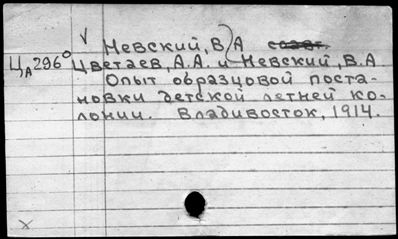 √ Невский, В А соавт.
ЦА296⁰ Цветаев, А.А. и Невский, В.А
Опыт образцовой поста-
новки детской летней ко-
лонии. Владивосток, 1914.
х